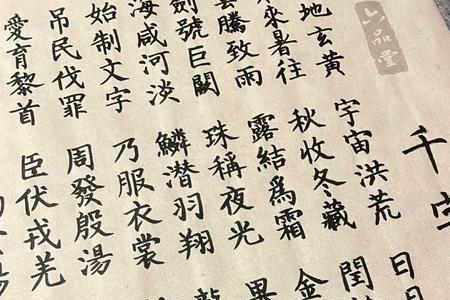 六品堂
千字
地玄黃宇宙洪荒日月
來暑往秋收冬藏閏
騰致雨露結爲霜金
劍號巨闕珠稱夜光
海咸河淡鱗潜羽翔龍
始制文字乃服衣裳
吊民伐罪周發殷湯
愛育黎首臣伏戎羌